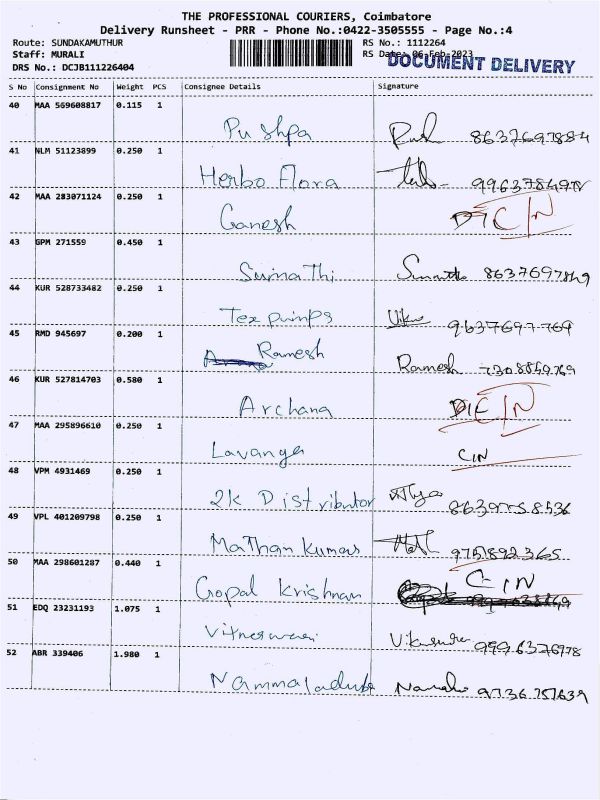 THE PROFESSIONAL COURIERS, Coimbatore
Delivery Runsheet - PRR - Phone No.:0422-3505555 - Page No.:4
Route: SUNDAKAMUTHUR RS No.: 1112264
Staff: MURALI RS Date: 06-Feb-2023
DOCUMENT DELIVERY
DRS No.: DCJB111226404
S No Consignment No Weight PCS Consignee Details Signature
40 MAA 569608817 0.115 1
Pushpa
41 NLM 51123899 0.250 1
Herbo Flora
42 MAA 283071124 0.250 1
Ganesh
43 GPM 271559 0.450 1
Sumathi 8637697869
44 KUR 528733482 0.250 1
Tex pumps 9637697769
45 RMD 945697 0.200 1
Ramesh Ramesh
46 KUR 527814703 0.580 1
Archana
47 MAA 295896610 0.250 1
Lavanya CIN
48 VPM 4931469 0.250 1
2K Distributor
49 VPL 401209798 0.250 1
Mathan Kumar 9751892365
50 MAA 298601287 0.440 1
Gopal Krishnan C-IN
51 EDQ 23231193 1.075 1
52 ABR 339406 1.980 1
9736757639